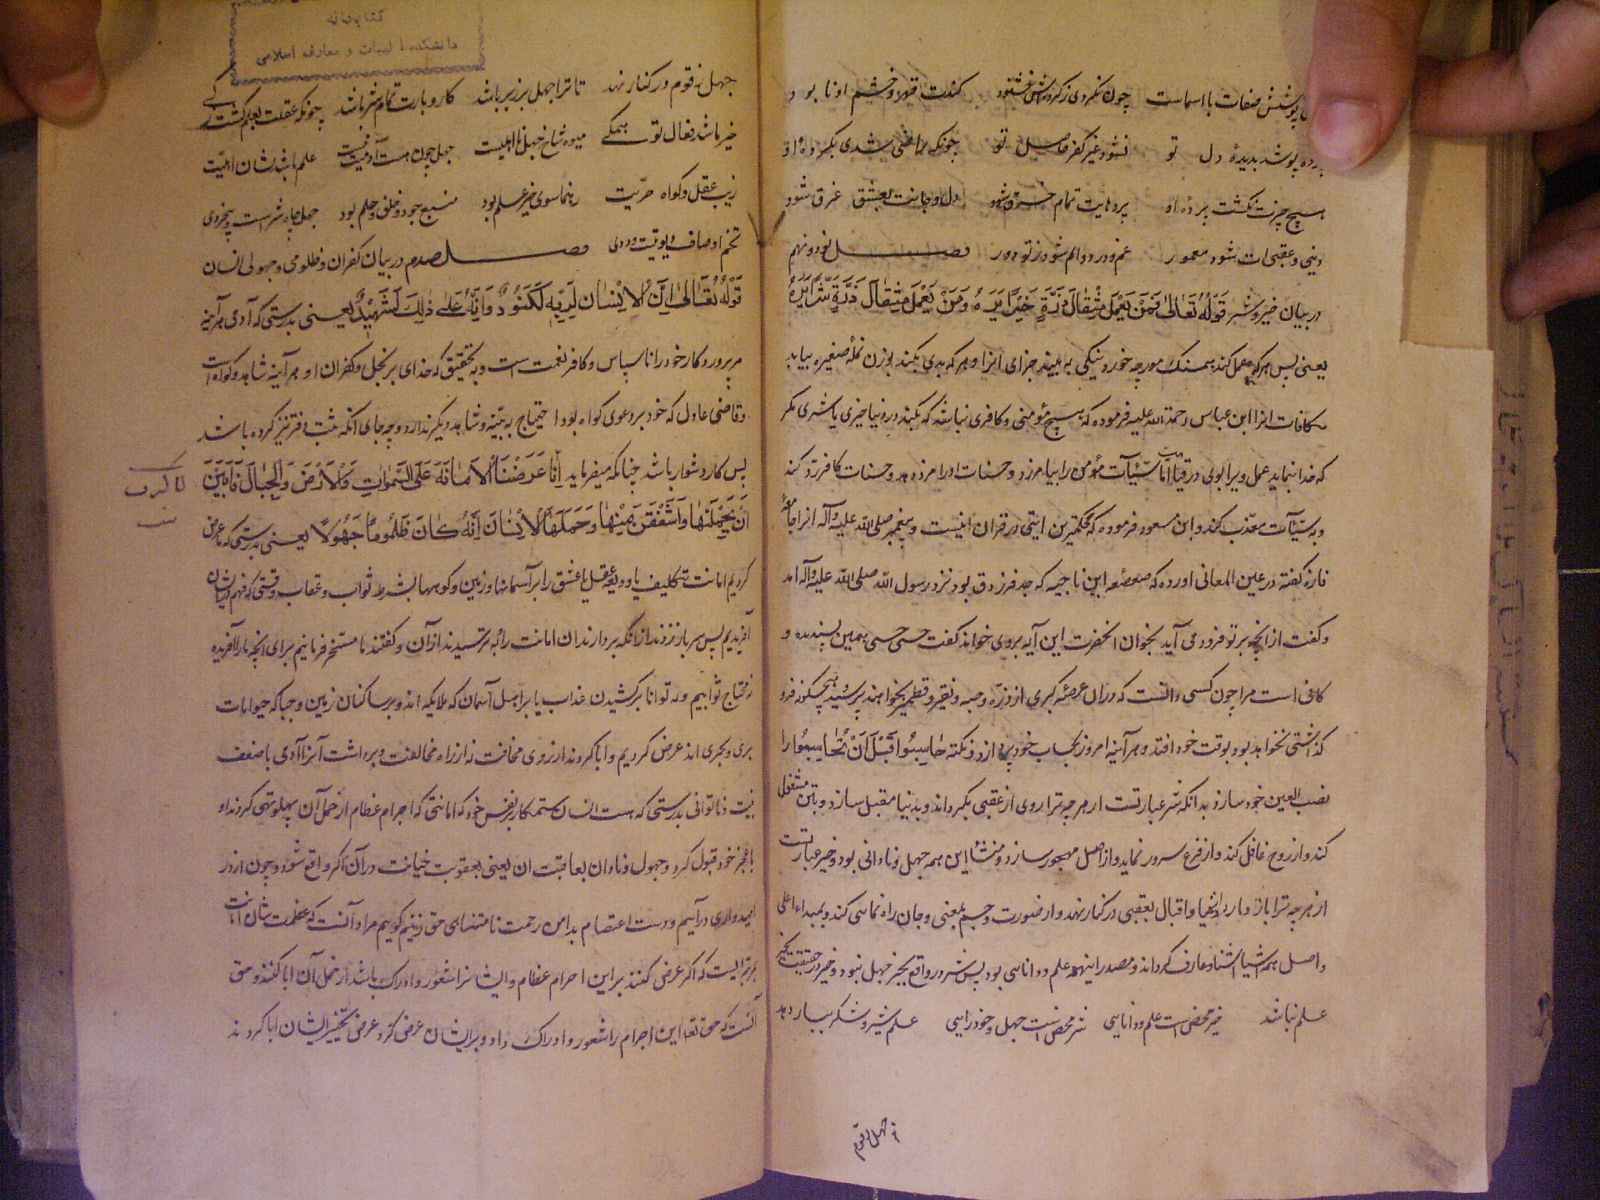 پوشش صفات با اسماست چون نگردی ز کرده‌اش خشنود کندت قهر و خشم او نابود
پرده پوشد بدیدهٔ دل تو نشود غیر کفر حاصل تو چونکه راضی شدی بکردهٔ او
هیچ چیزت نگشت پردهٔ او پردهایت تمام خرق شود دل و جانت بعشق غرق شود
دینی و عقبی‌ات شود معمور غم و درد و الم شود ز تو دور فصل نود و نهم
در بیان خیر و شر قوله تعالی فمن یعمل مثقال ذرة خیرا یره و من یعمل مثقال ذرة شرا یره
یعنی پس هرکه عمل کند همسنگ مورچه خورد نیکی به بیند جزای انرا و هرکه بدی بکند بوزن نملهٔ صغیره بیابد
مکافات انرا ابن عباس رحمة الله علیه فرموده که هیچ مؤمنی و کافری نباشد که بکند در دنیا خیری یا شری مگر
که خدا نماید عمل ویرا بوی در قیامت اما سیئات مؤمن را بیامرزد و حسنات اورا مزد دهد و حسنات کافر رد کند
و به سیئات معذب کند و ابن مسعود فرموده که محکمترین ایتی در قران اینست و پیغمبر صلی الله علیه و آله انرا جامعه
فاذه گفته در عین المعانی اورده که صعصعه ابن ناجیه که جد فرزدق بود نزد رسول الله صلی الله علیه و آله امد
و گفت از انچه بر تو فرود می آید بخوان انحضرت این آیه بروی خواند گفت حسبی حسبی همین پسندیده و
کافی است مرا چون کسی دانست که دران عرصهٔ کبری از ذره و حبه و نقیر و قطمیر بخواهند پرسید هیچگونه فرو
گذاشتی نخواهد بود بوقت خود افتد و هر آینه امروز بحساب خود پردازد و نکتهٔ حاسبوا قبل ان تحاسبوا را
نصب العین خود سازد بدانکه شر عبارتست از هر چه ترا روی از عقبی بگرداند و بدنیا مقبل سازد و بتن مشغول
کند و از روح غافل کند و از فرع سرور نماید و از اصل مهجور سازد و منشأ این همه جهل و نادانی بود و خیر عبارتست
از هر چه ترا باز دارد و اقبال بعقبی در کنار نهد و از صورت و جسم بمعنی و جان راه نماسی کند و بمبداء اعلی
و اصل همه اشیا اشنا و عارف گرداند و مصدر اینهمه علم و داناسی بود پس شر در واقع بجز جهل نبود و خیر در حقیقت بجز
علم نباشد خیر محض است علم و داناسی شر محض است جهل و خودرایی علم شیر و شکر ببار دهد
ز جهل زقوم
کتابخانه
دانشکده الهیات و معارف اسلامی
جهل زقوم در کنار نهد تا ترا جهل بر زبر باشد کار و بارت تمام شر باشد چونکه عقلت بعلم گشت یکی
خیر باشد فعال تو همگی میوهٔ شاخ جهل نااهلیست جهل چون هست آدمیت نیست علم باشد نشان اهلیت
زیب عقل و گواه حریت رهنما سوی خیر علم بود منبع جود و خلق و حلم بود جهل چاه شر است و بیخردی
تخم اوصاف دیویت و ددی فصل صدم در بیان کفران و ظلومی و جهولی انسان
قوله تعالی ان الانسان لربه لکنود و انه علی ذلک لشهید یعنی بدرستی که آدمی هر آینه
مر پروردگار خود را ناسپاس و کافر نعمت است و به تحقیق که خدای بر بخل و کفران او هر آینه شاهد و گواه است
و قاضی عادل که خود بر دعوی گواه بود احتیاج به بینه و شاهد دیگر ندارد و چه جای انکه ثبت دفتر نیز کرده باشد
پس کار دشوار باشد چنانکه میفرماید انا عرضنا الامانة علی السموات و الارض و الجبال فابین
ان یحملنها و اشفقن منها و حملها الانسان انه کان ظلوما جهولا یعنی بدرستی که ما عرض
کردیم امانت تکلیف یا ودیعهٔ عقل یا عشق را بر آسمانها و زمین و کوهها بشرط ثواب و عقاب وقتی که فهم در ایشان
آفریدیم پس سر باز زدند از انکه بردارند ان امانت را و بترسیدند از آن و گفتند ما مسخر فرمانیم برای انچه مارا آفریده
نه محتاج ثوابیم و نه توانا بر کشیدن عذاب یا بر اهل آسمان که ملایکه اند و بر ساکنان زمین و جبال که حیوانات
بری و بحری اند عرض کردیم و ابا کردند از روی مخافت نه از راه مخالفت و برداشت آنرا آدمی با ضعف
بنیت و ناتوانی بدرستی که هست انسان ستمکار بر نفس خود که امانتی که اجرام عظام از حمل آن پهلو تهی کردند او
با عجز خود قبول کرد و جهول و نادان بعاقبت ان یعنی بعقوبت خیانت در آن اگر واقع شود و چون از در
امیدواری درآییم و دست اعتصام بدامن رحمت نامتناهی حق زنیم گوییم مراد آنست که عظمت شان امانت
بمرتبه ایست که اگر عرض کنند بر این اجرام عظام و ایشانرا شعور و ادراک باشد از حمل آن ابا کنند و حق
آنست که حق تعالی این اجرام را شعور و ادراک داد و بر ایشان عرض کرد عرض تخییر ایشان ابا کردند